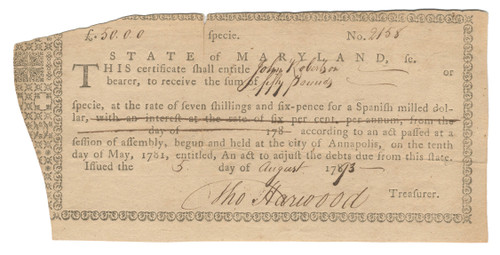 £.50.0.0 specie. No. 2158
STATE OF MARYLAND, sc.
THIS certificate shall entitle John Robertson or
bearer, to receive the sum of fifty Pounds
specie, at the rate of seven shillings and six-pence for a Spanish milled dol-
lar, with an interest at the rate of six per cent. per annum, from the
day of 178 according to an act passed at a
session of assembly, begun and held at the city of Annapolis, on the tenth
day of May, 1781, entitled, An act to adjust the debts due from this state.
Issued the 5 day of August 1783
Tho Harwood Treasurer.